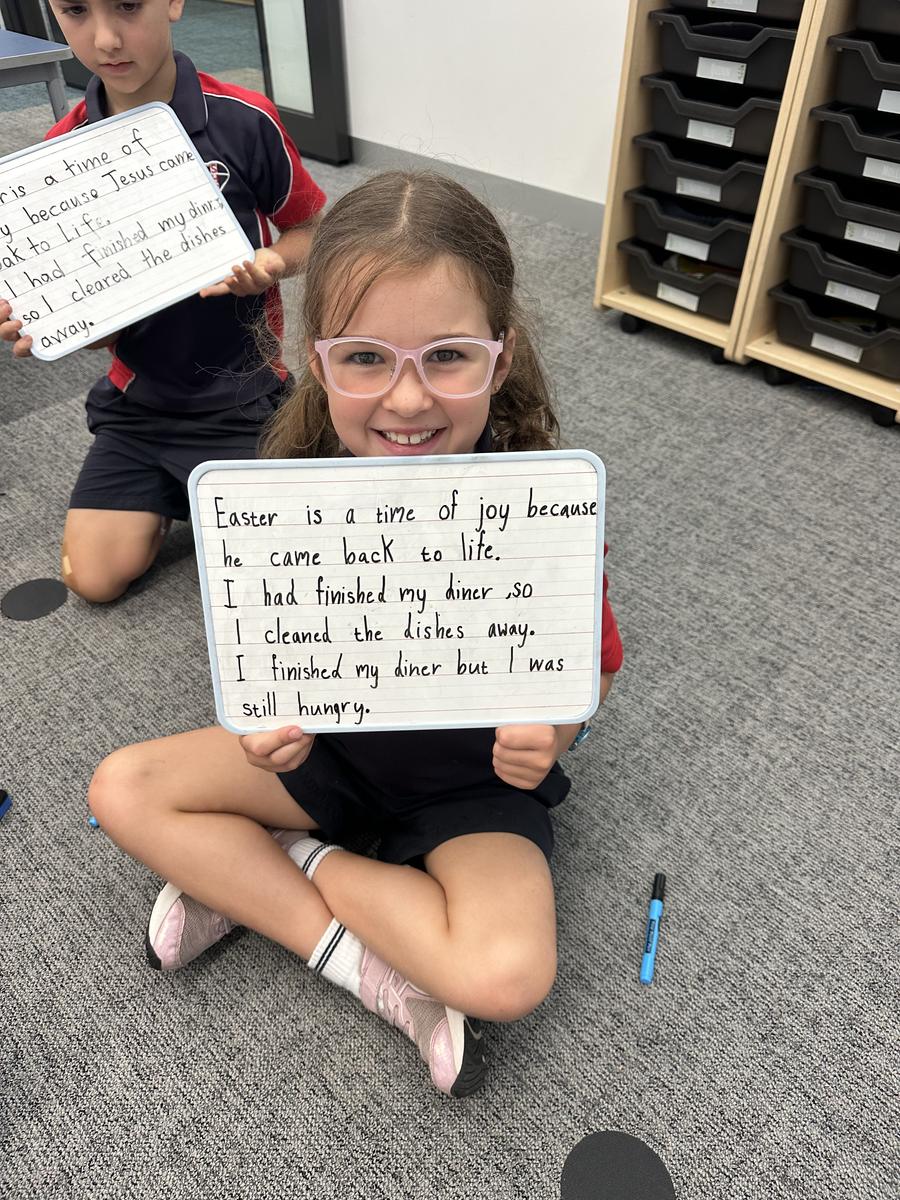 is a time of
because Jesus came
to Life.
I had finished my
so I cleared the dishes
away.
Easter is a time of joy because
he came back to life.
I had finished my diner ,so
I cleaned the dishes away.
I finished my diner but I was
still hungry.